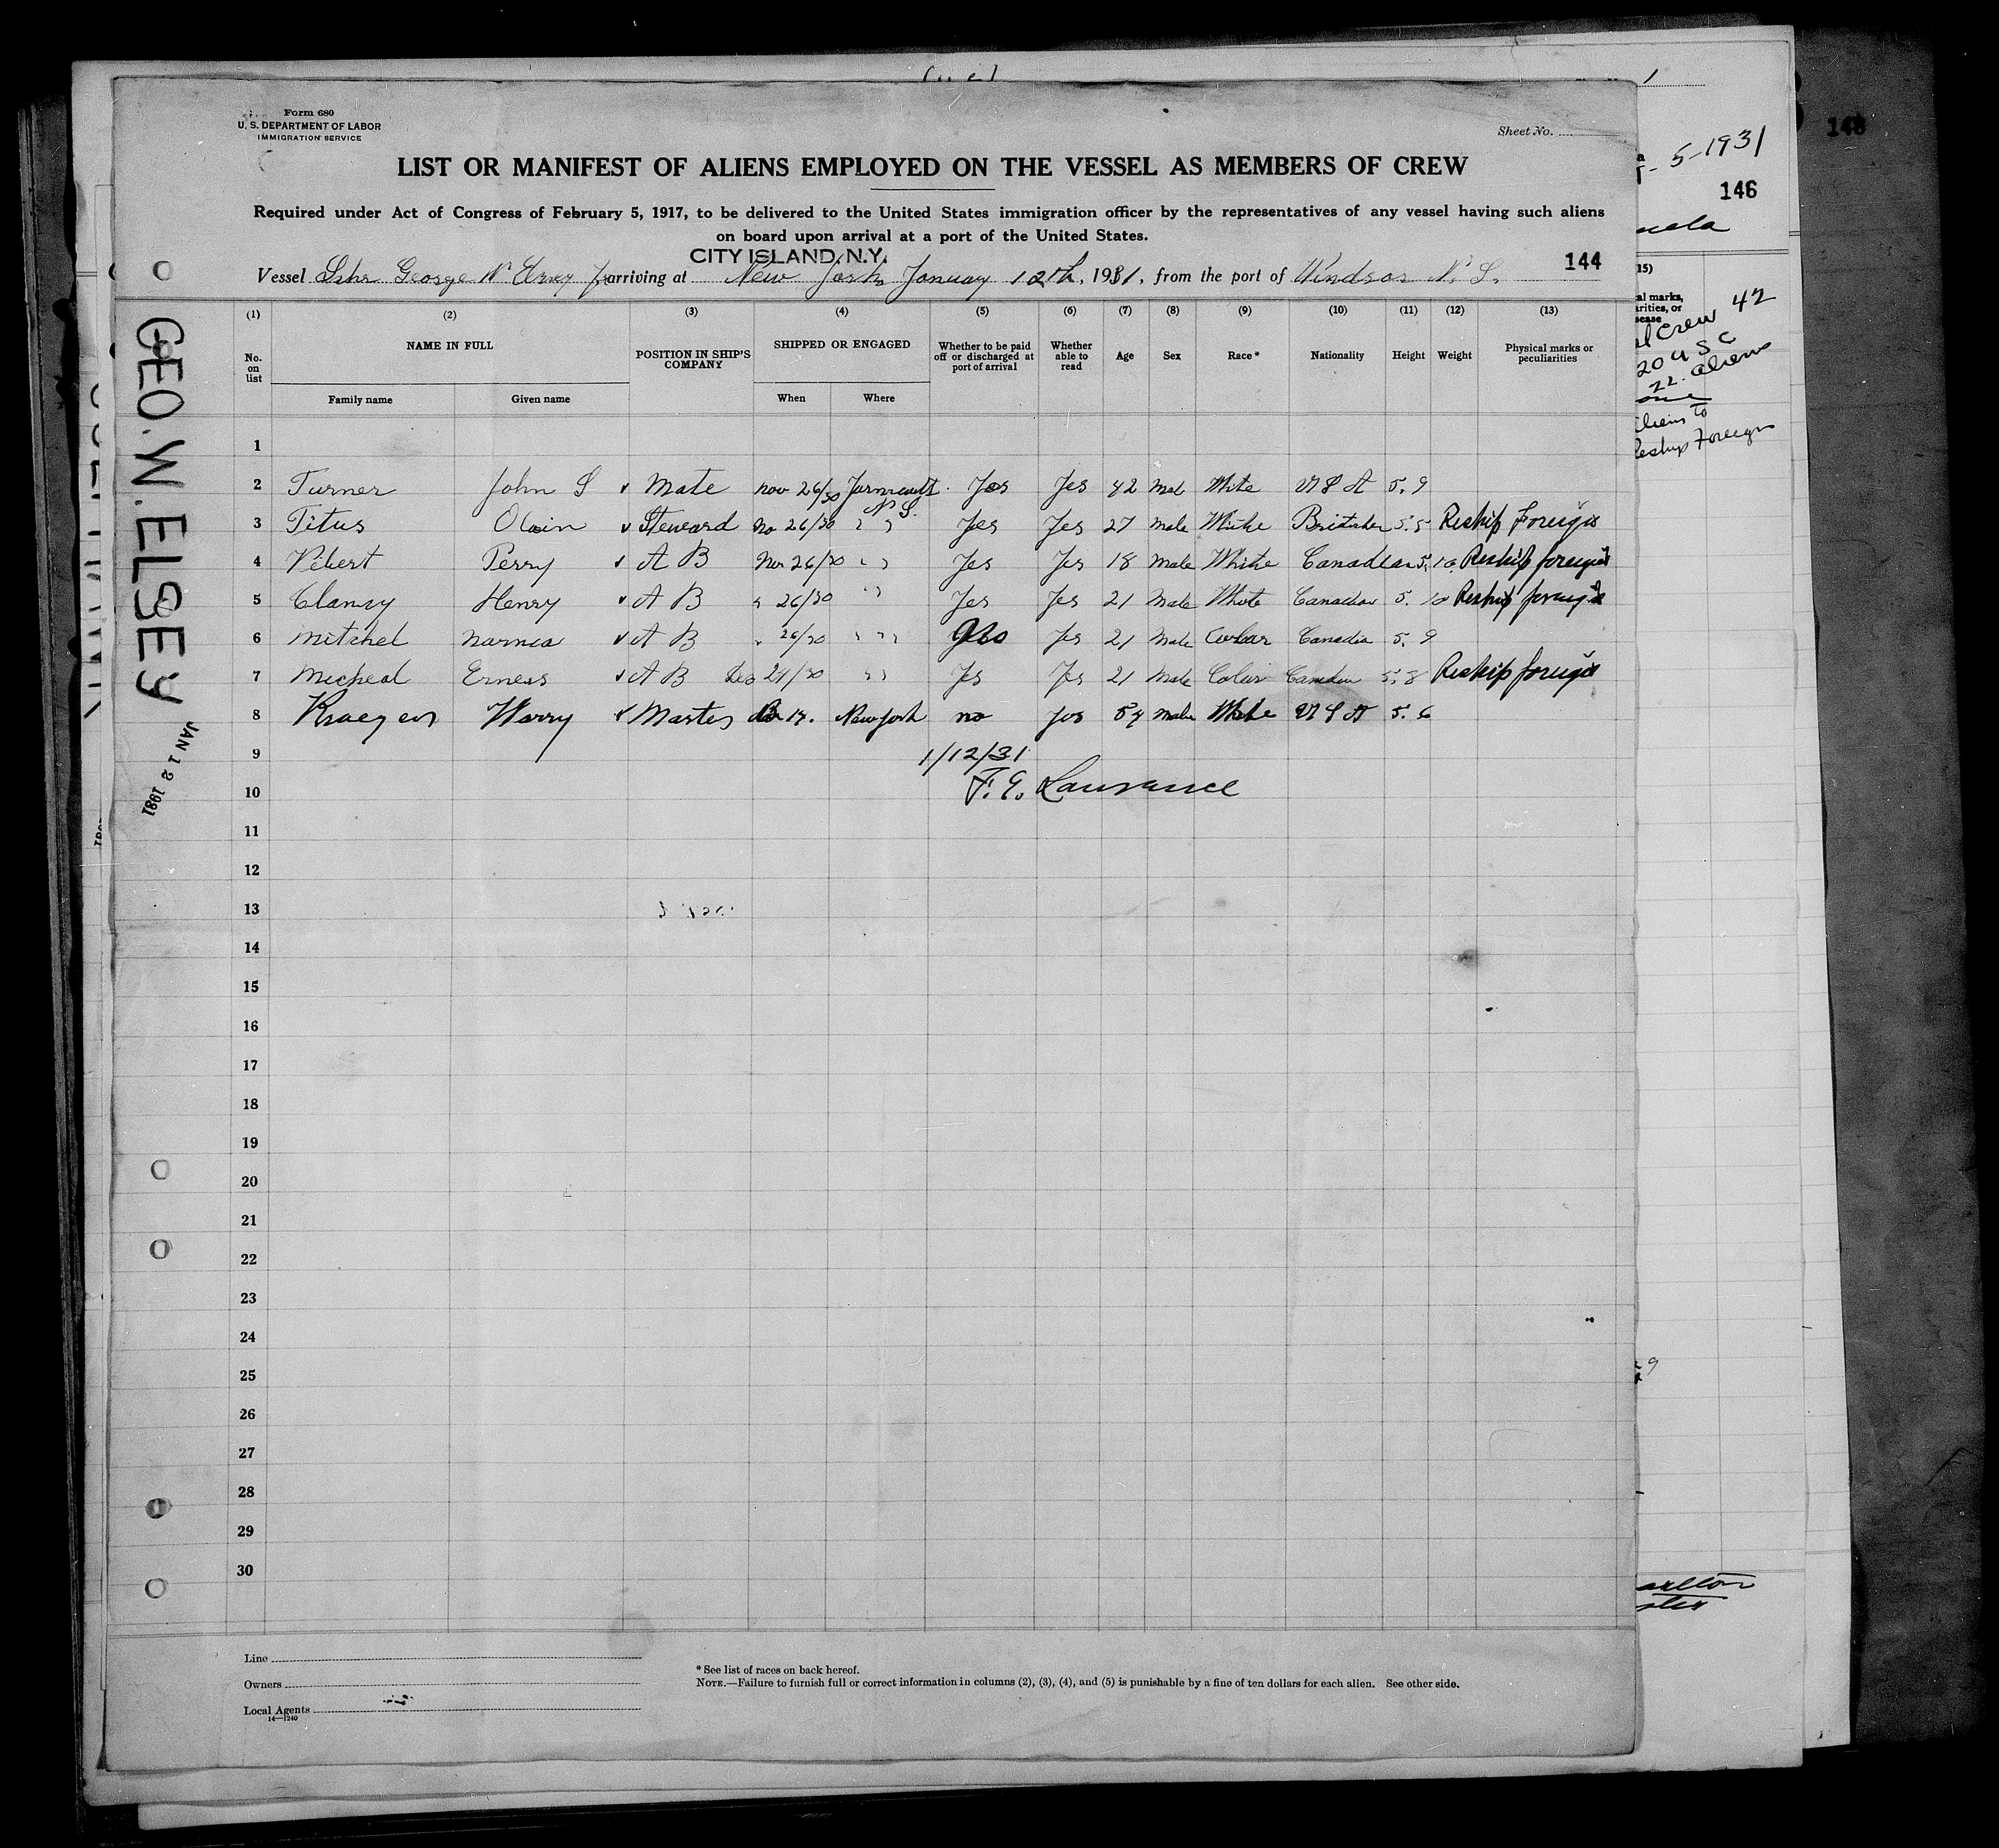 Form 680
U. S. DEPARTMENT OF LABOR
IMMIGRATION SERVICE
Sheet No.
LIST OR MANIFEST OF ALIENS EMPLOYED ON THE VESSEL AS MEMBERS OF CREW
Required under Act of Congress of February 5, 1917, to be delivered to the United States immigration officer by the representatives of any vessel having such aliens
on board upon arrival at a port of the United States.
CITY ISLAND, N.Y.
144
Vessel Schr George W Elsey Jr arriving at New York January 12th, 1931, from the port of Windsor N. S.
(1) (2) (3) (4) (5) (6) (7) (8) (9) (10) (11) (12) (13)
No. on list NAME IN FULL POSITION IN SHIP'S COMPANY SHIPPED OR ENGAGED Whether to be paid off or discharged at port of arrival Whether able to read Age Sex Race* Nationality Height Weight Physical marks or peculiarities
Family name Given name When Where
1
2 Turner John S ✓ Mate Nov 26/30 Yarmouth N S. Yes Yes 42 Mal White U S A 5.9
3 Titus ✓ Steward No 26/30 " " Yes Yes 27 Male White 5.5 Reship Foreign
4 Vibert Perry ✓ A B Nov 26/30 " " Yes Yes 18 Male White Canadian 5.10 Reship foreign
5 Clansy Henry ✓ A B " 26/30 " " Yes Yes 21 Male White Canadian 5.10 Reship foreign
6 Mitchel ✓ A B " 26/30 " " " Yes 21 Male Canadia 5.9
7 Micheal Erness ✓ A B Dec /30 " " Yes Yes 21 Male Color 5.8 Reship foreign
8 Harry ✓ Master New York no Yes 54 Male White U S A 5.6
9 1/12/31
10 F. E. Laurance
11
12
13
14
15
16
17
18
19
20
21
22
23
24
25
26
27
28
29
30
Line
Owners
Local Agents
14—1240
* See list of races on back hereof.
NOTE.—Failure to furnish full or correct information in columns (2), (3), (4), and (5) is punishable by a fine of ten dollars for each alien. See other side.
GEO. W. ELSEY
JAN 12 1931
5-1931
146
148
15)
al marks,
arities, or
42
Crew
20 U S C
22 aliens
to
Reship Foreign